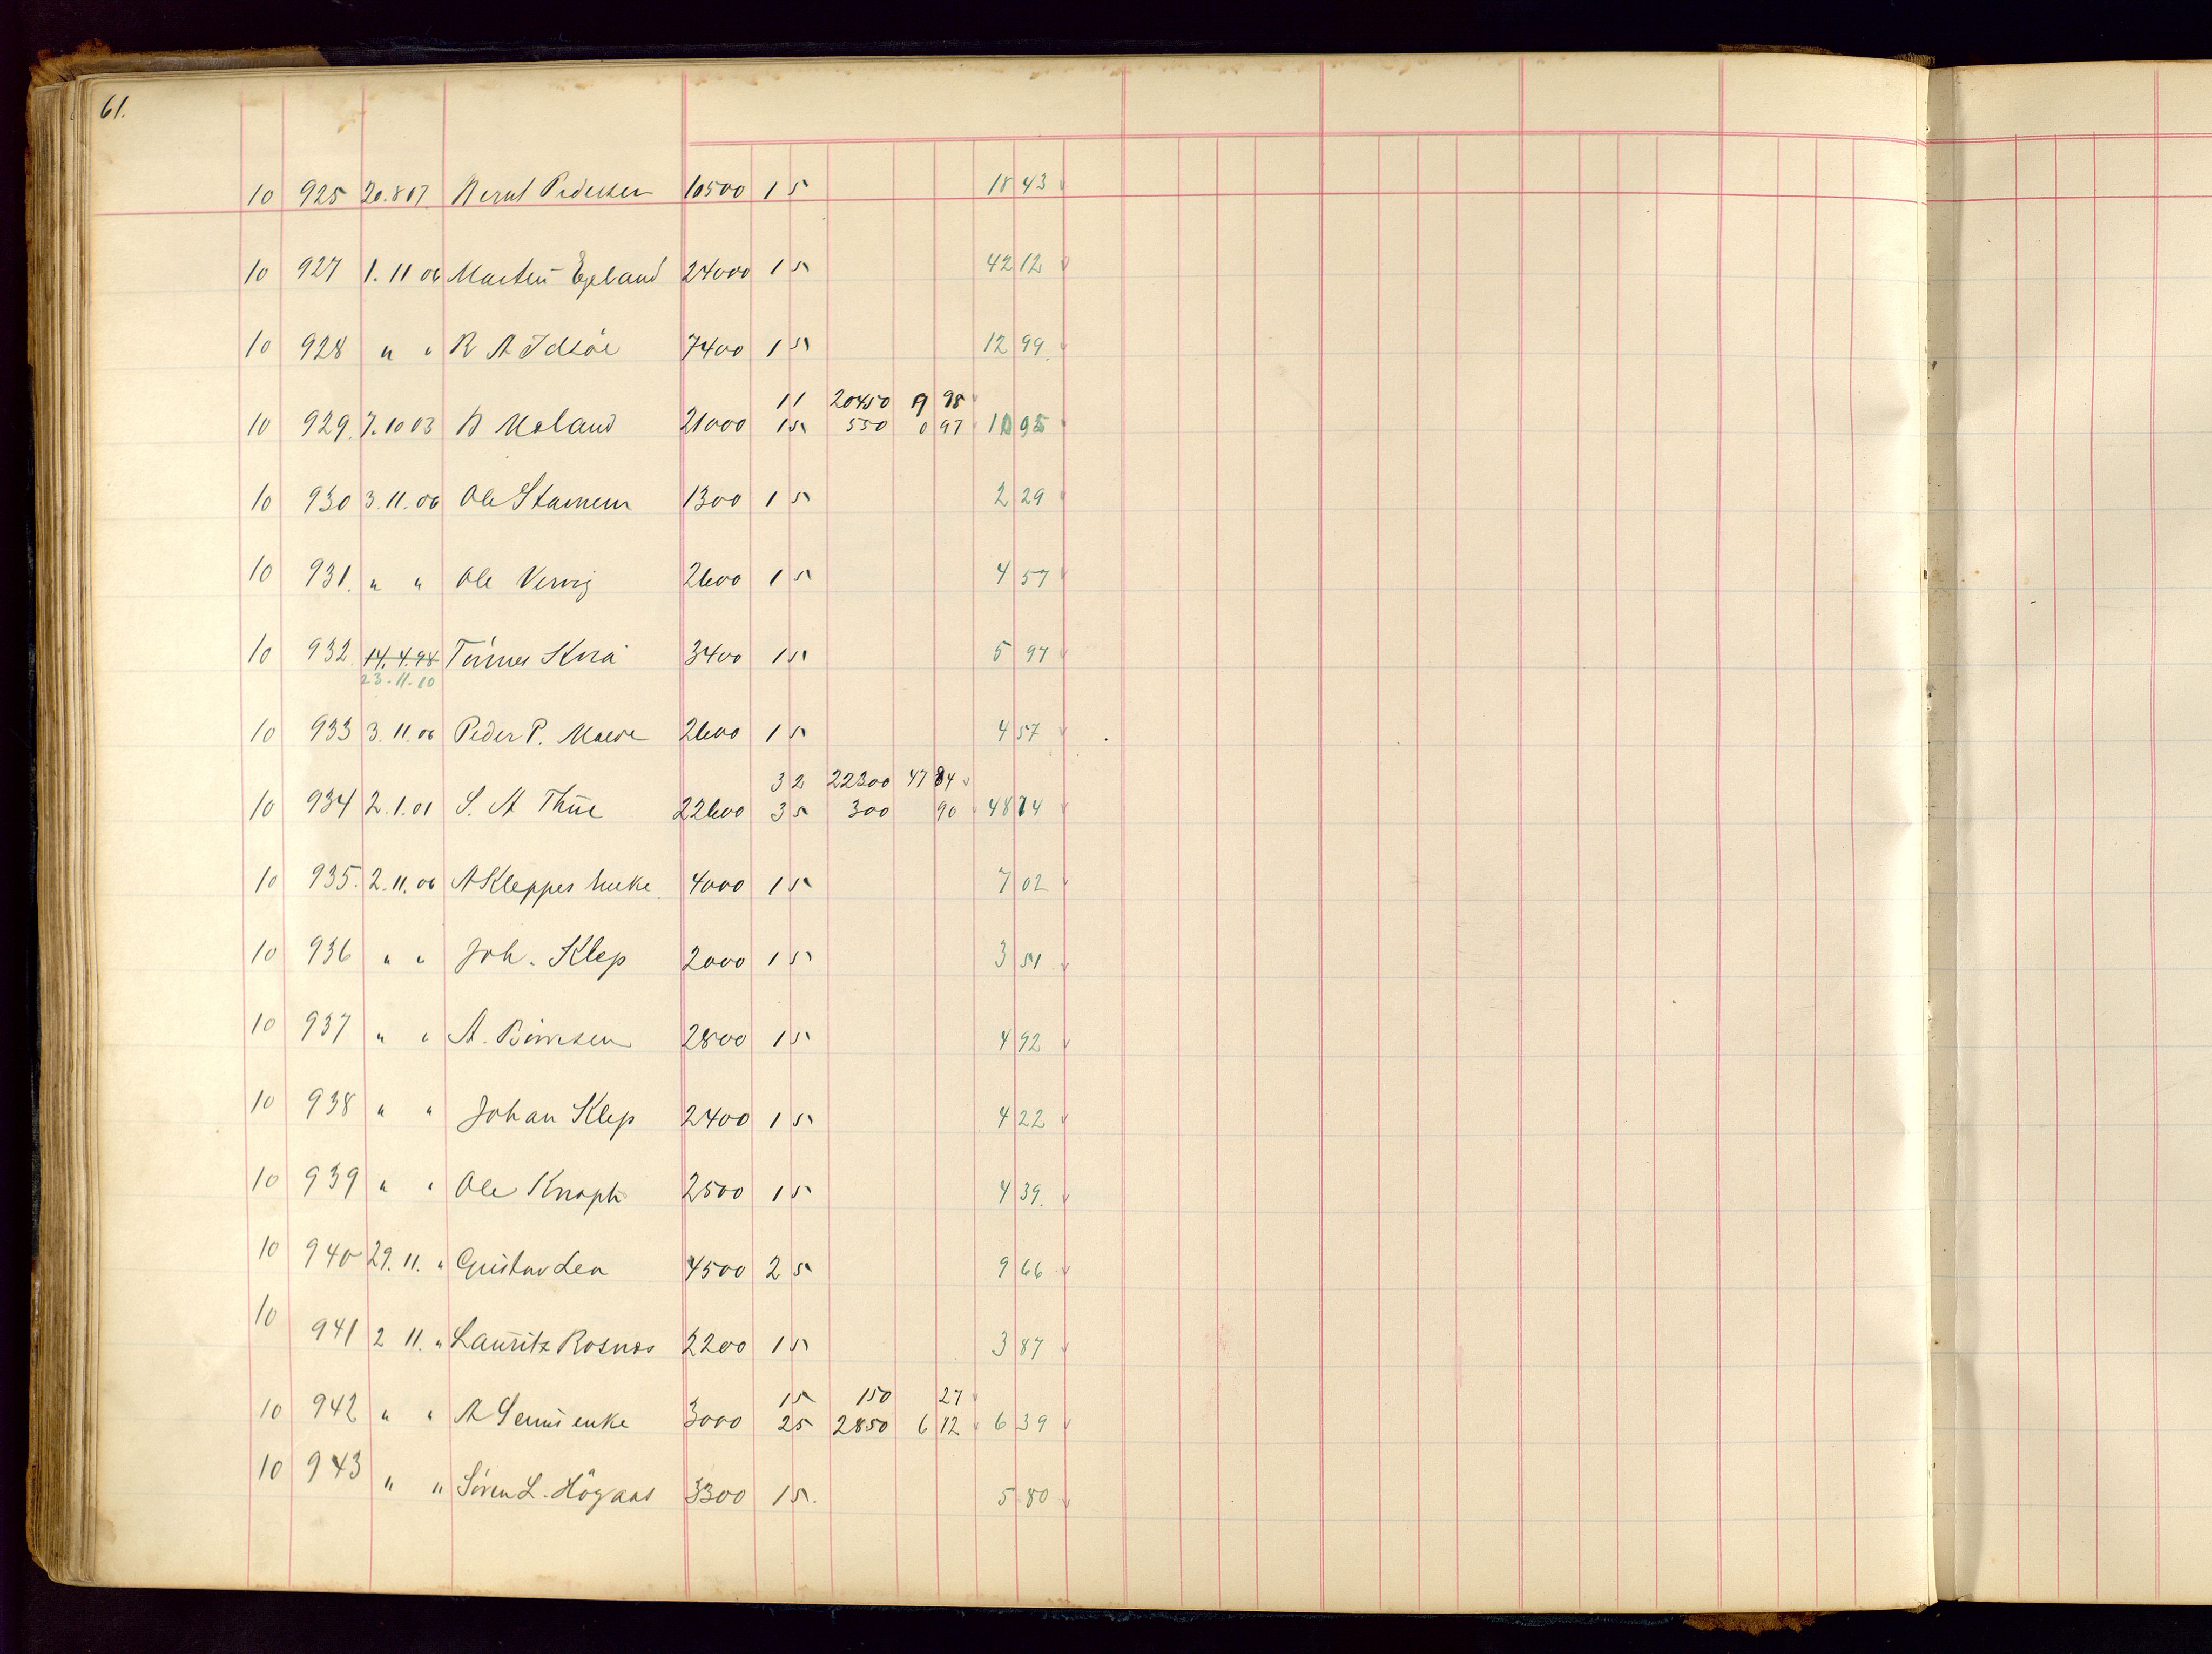 61.
10 925 20.8 07. Bernt Pedersen 10500 1 5 18 43
10 927 1. 11 06 Martin Egeland 24000 1 5 42 12
10 928 " " R A Idsøe 7400 1 5 12 99
11 20450 9 98
10 929. 7. 10 03 B Moland 21000 15 550 0 97 10 95
10 930 3. 11. 06 Ole Stamnem 1300 1 5 2 29
10 931. " " Ole Vervig 2600 1 5 4 57
10 932 14. 4. 98 Tönnes Kvia 3400 1 5 5 97
23. 11. 10
10 933 3. 11. 06 Peder P. 2600 1 5 4 57
3 2 22300 47 84
10 934 2. 1. 01 S. A Thue 22600 3 5 300 90 48 74
10 935. 2. 11. 06 A Kleppes Enke 4000 1 5 7 02
10 936 " " Joh. Klep 2000 1 5 3 51
10 937 " " A. 2800 1 5 4 92
10 938 " " Johan Klep 2400 1 5 4 22
10 939 " " Ole Knoph 2500 1 5 4 39.
10 940 29. 11. " Gustav Lea 4500 2 5 9 66
10 941 2 11. " Lauritz Rosnes 2200 1 5 3 87
15 150 27
10 942 " " A enke 3000 25 2850 6 12 6 39
10 943 " " Sören L. Högaas 3300 1 5. 5 80